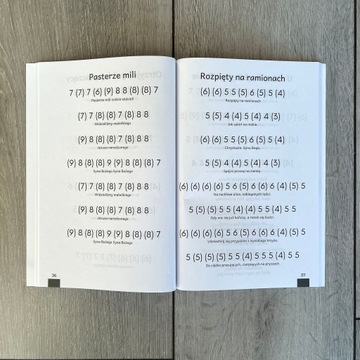 Pasterze mili
7 (7) 7 (6) (9) 8 8 (8) (8) 7
Pasterze mili coście widzieli
(7) (7) (8) (8) 7 (8) 8 8
Widzieliśmy maleńkiego
(9) (8) (8) (8) 7 (8) 8 8
Jezusa narodzonego
(9) (8) (8) (8) 9 (9) (8) (8) (8) 7
Syna Bożego Syna Bożego
(7) (7) (8) (8) 7 (8) 8 8
Widzieliśmy maleńkiego
(9) (8) (8) (8) 7 (8) 8 8
Jezusa narodzonego
(9) (8) (8) (8) 9 (9) (8) (8) (8) 7
Syna Bożego Syna Bożego
36
Rozpięty na ramionach
(6) (6) 5 5 (5) (6) 5 (4)
Rozpięty na ramionach
5 5 (4) (5) (4) (4) (3)
Jak sokół na niebie.
(6) (6) 5 5 (5) (6) 5 (4)
Chrystusie, Synu Boga,
5 5 (4) (5) (4) (4) (3)
Spójrz proszę na ziemię.
(6) (6) (6) (6) (5) 5 6 (5) 6 6 (4) (5) 5
Na ruchliwe ulice,
5 (5) (5) (5) 5 (4) (5) (4) 5 5
(6) (6) (6) (6) (5) 5 6 (5) 6 6 (4) (5) 5
5 (5) (5) (5) 5 5 (4) 5 5 5 5
37